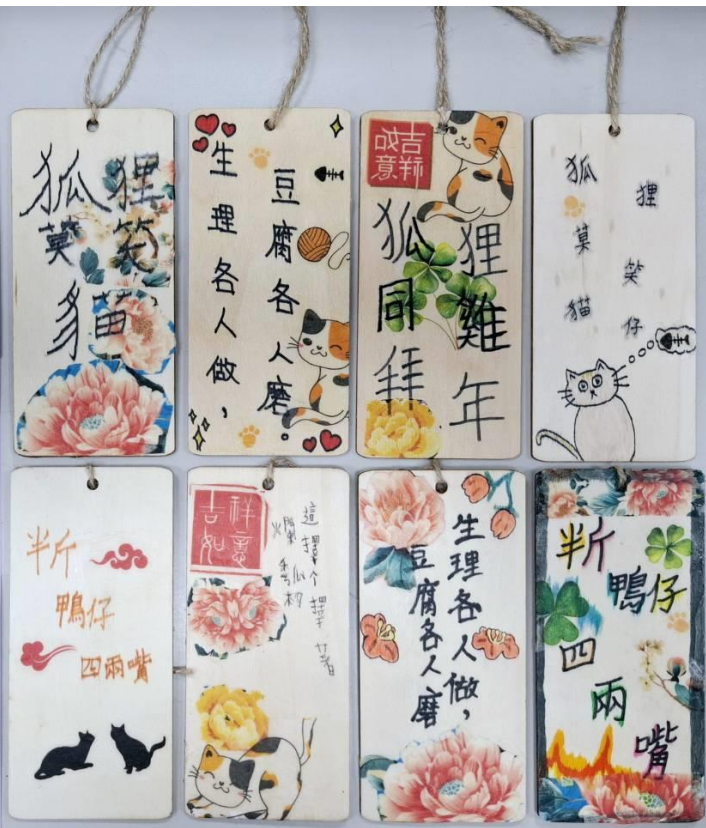 狐狸
莫笑
貓
生理各人做，
豆腐各人磨。
吉祥
如意
狐狸
同難
拜年
狐狸
莫笑
猫仔
半斤
鴨仔
四兩嘴
吉祥
如意
這擇个擇
爛
生理各人做，
豆腐各人磨
半斤
鴨仔
四
兩
嘴